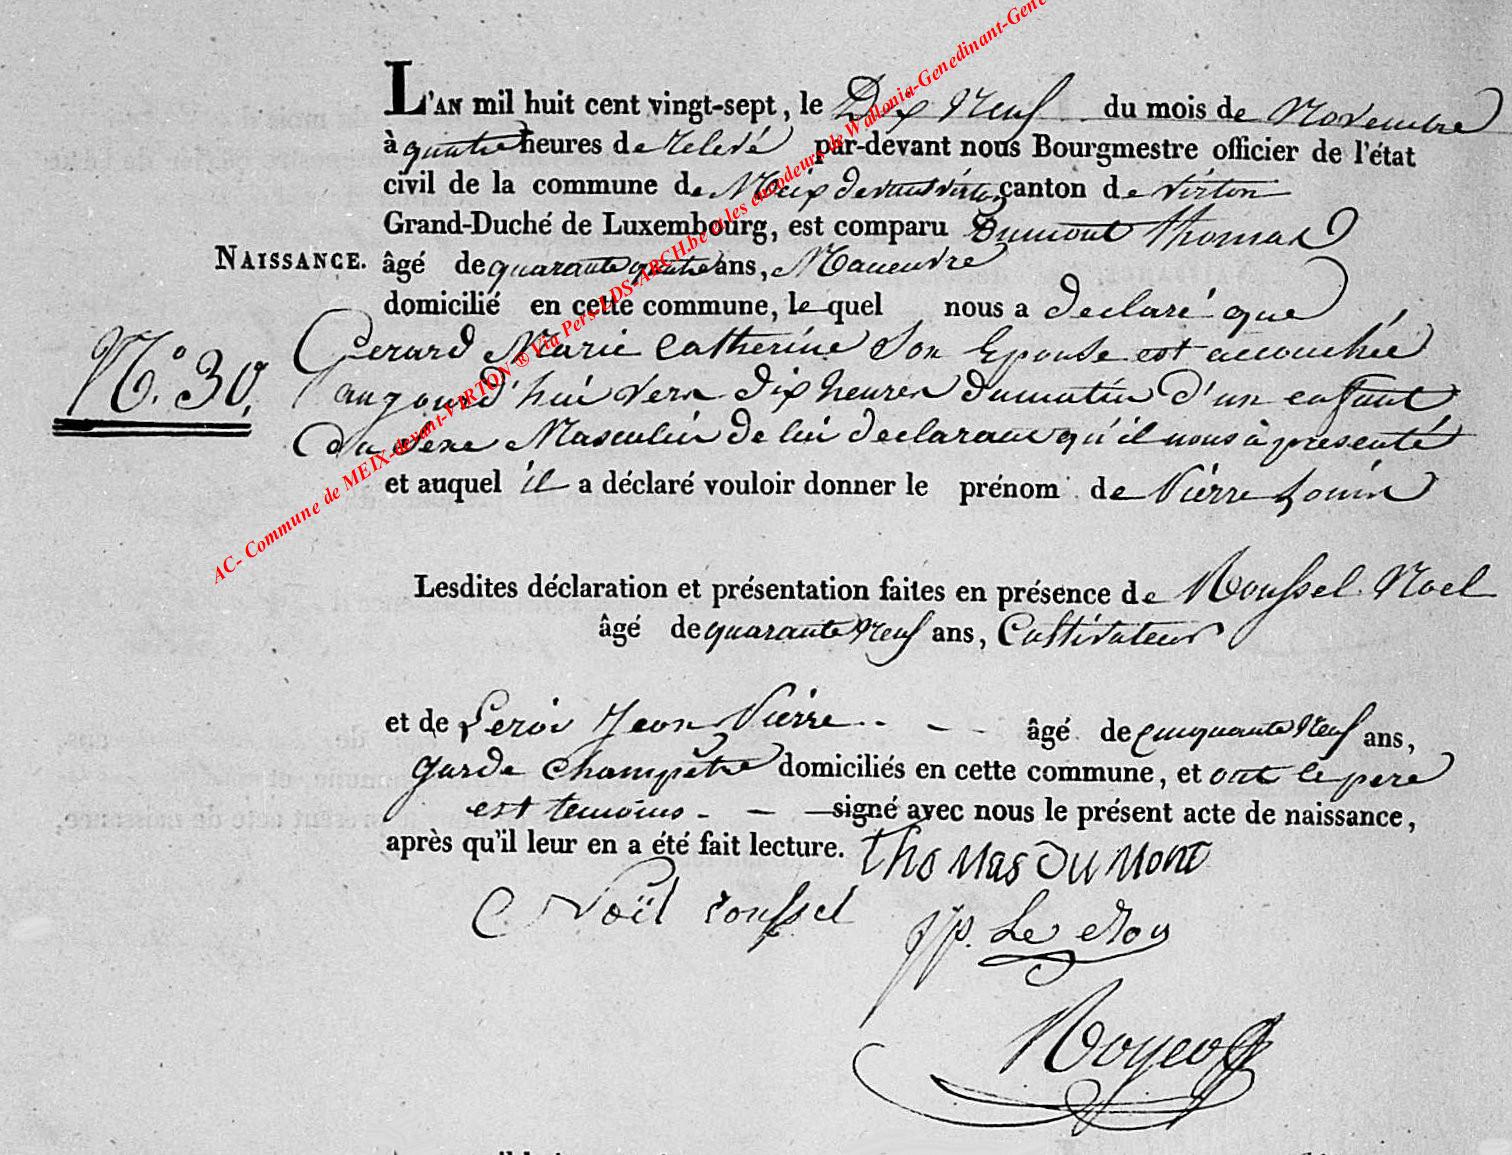 L'AN mil huit cent vingt-sept, le Dix Neuf du mois de Novembre
à quatre heures de relevé par-devant nous Bourgmestre officier de l'état
civil de la commune de Meix devant virton canton de virton
Grand-Duché de Luxembourg, est comparu Dumont thomas
NAISSANCE. âgé de quarante quatre ans, Maneuvre
domicilié en cette commune, lequel nous a declaré que
N.° 30. Gerard Marie Catherine Son Epouse est accouchée
aujourd'hui vers dix heures du matin d'un enfant
du sexe Masculin de lui declarant qu'il nous à presenté
et auquel il a déclaré vouloir donner le prénom de Pierre Louis
Lesdites déclaration et présentation faites en présence de Roussel Noel
âgé de quarante Neuf ans, Cultivateur
et de Leroi Jean Pierre - - âgé de cinquante Neuf ans,
garde champêtre domiciliés en cette commune, et ont le pere
est temoins - - signé avec nous le présent acte de naissance,
après qu'il leur en a été fait lecture. thomas Dumont
Noël roussel
jp. Le Roy
AC- Commune de MEIX-devant-VIRTON ® Via Pers-LDS-ARCH.be et les encodeurs de Wallonia-Genedinant-Gene